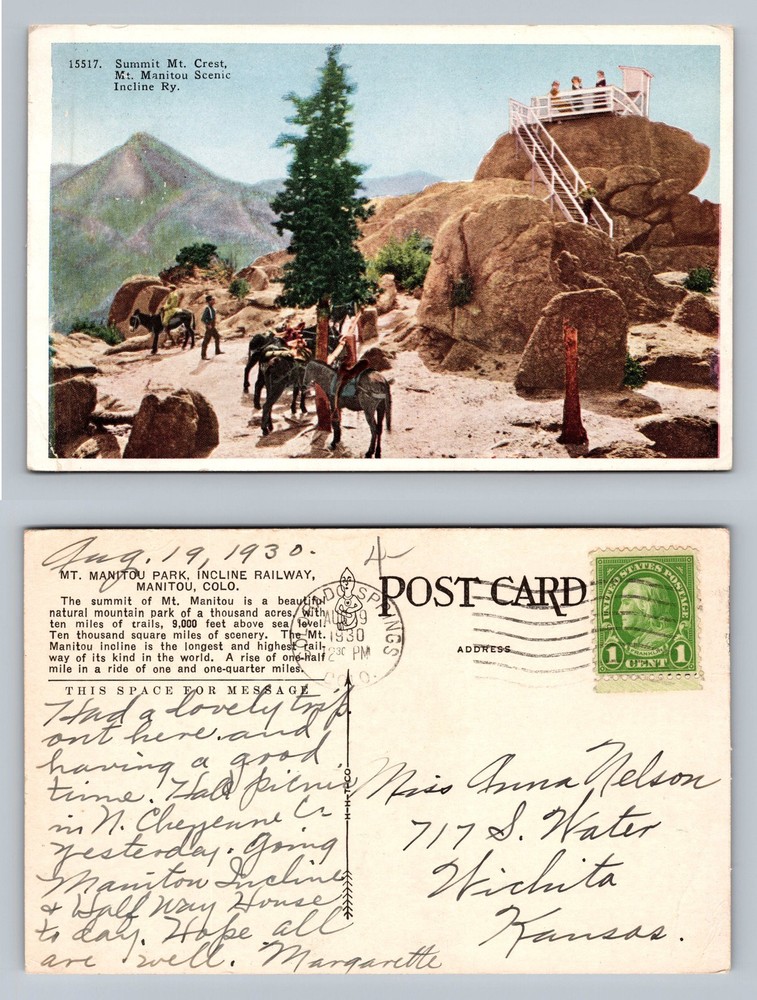 15517. Summit Mt. Crest,
Mt. Manitou Scenic
Incline Ry.
Aug. 19, 1930.
4
MT. MANITOU PARK, INCLINE RAILWAY,
MANITOU, COLO.
The summit of Mt. Manitou is a beautiful
natural mountain park of a thousand acres, with
ten miles of trails, 9,000 feet above sea level.
Ten thousand square miles of scenery. The Mt.
Manitou incline is the longest and highest rail-
way of its kind in the world. A rise of one-half
mile in a ride of one and one-quarter miles.
THIS SPACE FOR MESSAGE
Had a lovely trip
out here and
having a good
time. Had picnic
in N. Cheyenne Cr
yesterday. Going
Manitou Incline
& Half Way House
to day. Hope all
are well. Margarette
COLORADO SPRINGS
AUG 19
1930
12 30 PM
COLO.
POST CARD
ADDRESS
UNITED STATES POSTAGE
FRANKLIN
1 CENT 1
H-H-T-CO.
Miss Anna Nelson
717 S. Water
Wichita
Kansas.